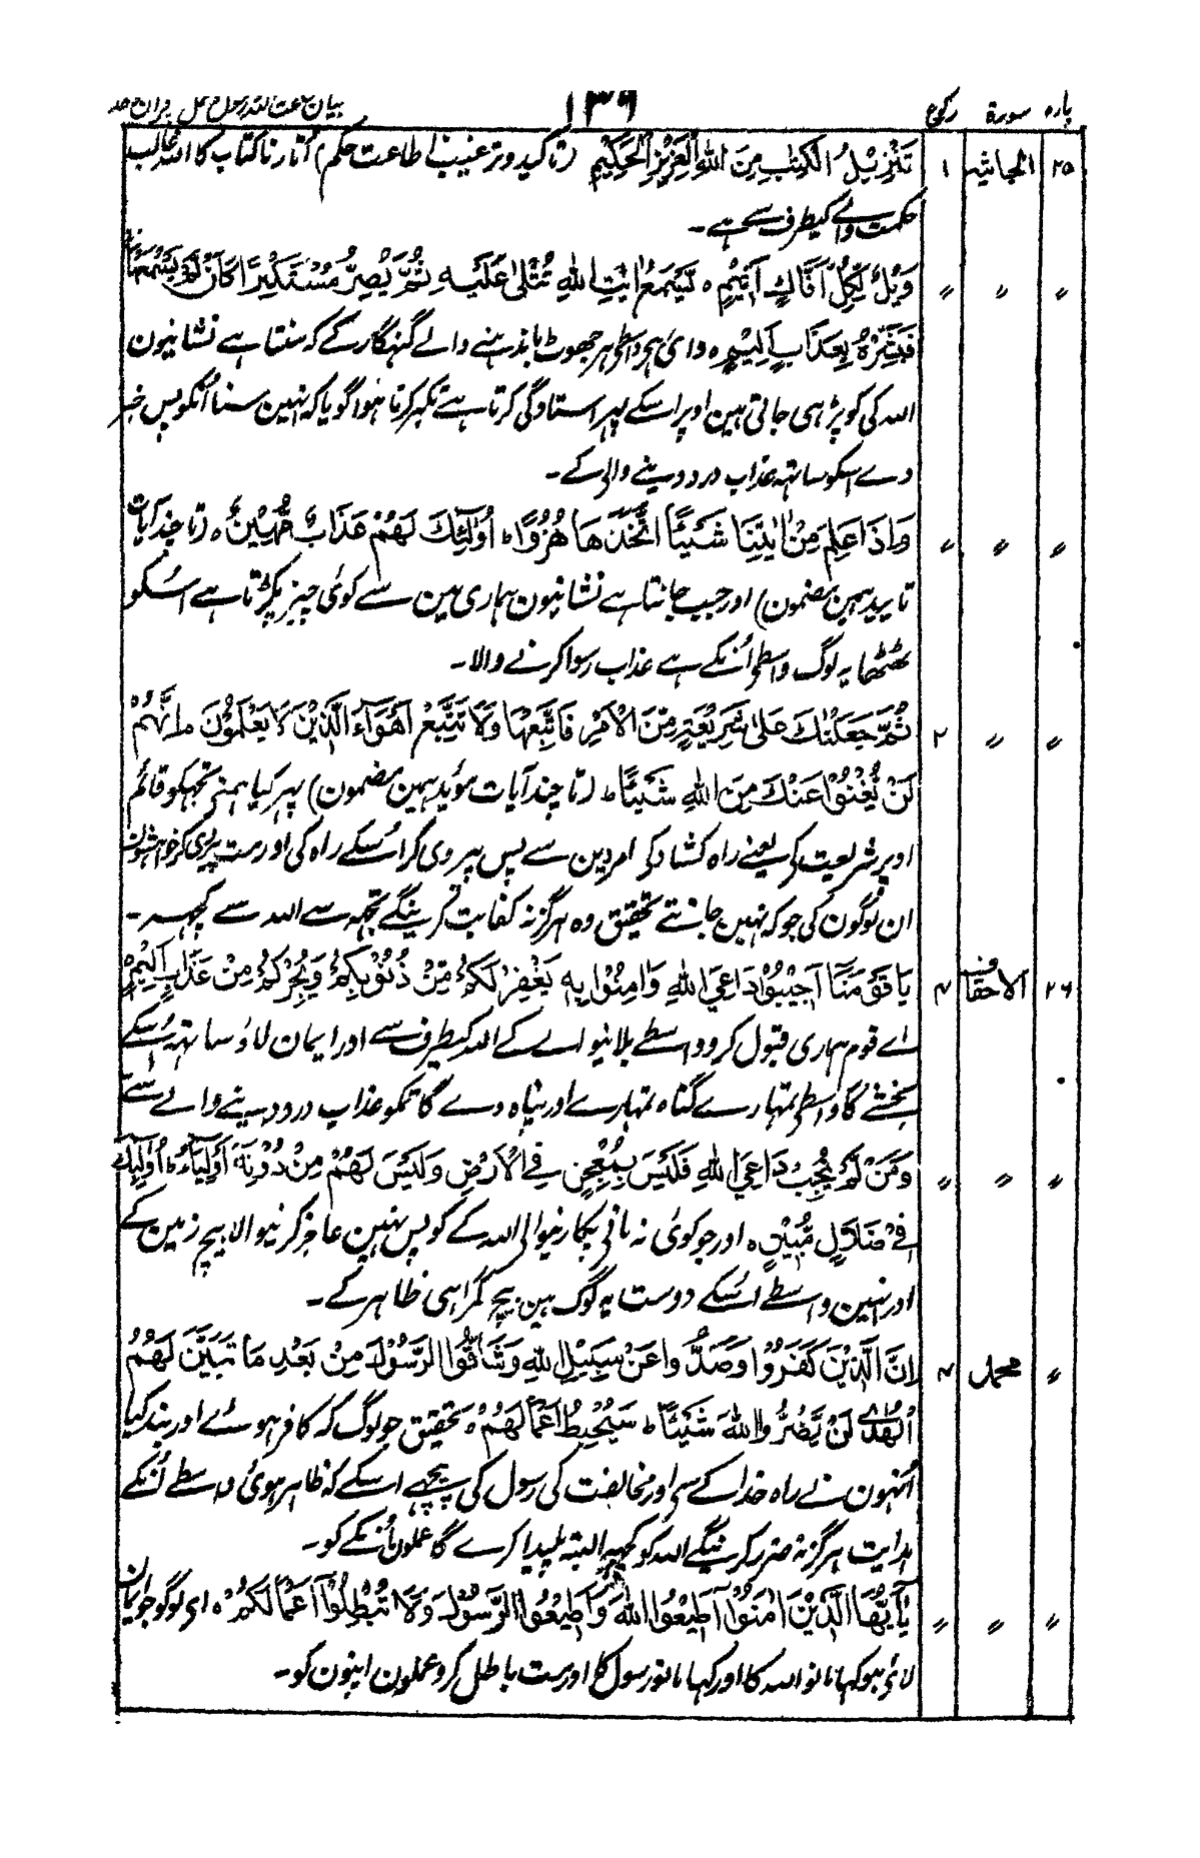 پارہ سورۃ رکوع ۱۳۶ بیان طاعت اللہ رسول و عمل قرآن و حد
۲۵ الجاثیہ ۱ تَنْزِیْلُ الْکِتٰبِ مِنَ اللّٰہِ الْعَزِیْزِ الْحَکِیْمِ (تاکید و ترغیب اطاعت حکم) اُتارنا کتاب کا اللہ غالب
حکمت والے کیطرف سے ہے۔
〃 〃 〃 وَیْلٌ لِّکُلِّ اَفَّاکٍ اَثِیْمٍ ہ یَّسْمَعُ اٰیٰتِ اللّٰہِ تُتْلٰی عَلَیْہِ ثُمَّ یُصِرُّ مُسْتَکْبِرًا کَاَنْ لَّمْ یَسْمَعْہَا
فَبَشِّرْہُ بِعَذَابٍ اَلِیْمٍ ہ وائے ہی واسطے ہر جھوٹ باندہنے والے گنہگار کے کہ سنتا ہے نشانیون
اللہ کی کو پڑہی جاتی ہین اوپر اسکے پہر استادگی کرتا ہے تکبر کرتا ہوا گویا کہ نہین سنا اُنکو پس خبر
دے اسکو ساتہہ عذاب درد دینے والی کے۔
〃 〃 〃 وَاِذَا عَلِمَ مِنْ اٰیٰتِنَا شَیْئًا اتَّخَذَہَا ہُزُوًا ط اُولٰٓئِکَ لَہُمْ عَذَابٌ مُّہِیْنٌ ہ (تا چند آیات
تایید ہمین مضمون) اور جب جانتا ہے نشانیون ہماری مین سے کوئی چیز پکڑتا ہے اسکو
ٹھٹھا یہ لوگ واسطے اُنکے ہے عذاب رسوا کرنے والا۔
〃 〃 ۲ ثُمَّ جَعَلْنٰکَ عَلٰی شَرِیْعَۃٍ مِّنَ الْاَمْرِ فَاتَّبِعْہَا وَلَا تَتَّبِعْ اَہْوَآءَ الَّذِیْنَ لَا یَعْلَمُوْنَ ط اِنَّہُمْ
لَنْ یُّغْنُوْا عَنْکَ مِنَ اللّٰہِ شَیْئًا ط (تا چند آیات مؤید ہمین مضمون) پہر کیا ہمنے تجہکو قائم
اوپر شریعت کے یعنے راہ کشادکی امر دین سے پس پیروی کر اُسکے راہ کی اور مت پیروی کر خواہشون
ان لوگون کی جو کہ نہین جانتے تحقیق وہ ہرگز نہ کفایت کرینگے تجہہ سے اللہ سے کچہہ۔
۲۶ الاحقاف ۴ یَا قَوْمَنَآ اَجِیْبُوْا دَاعِیَ اللّٰہِ وَاٰمِنُوْا بِہٖ یَغْفِرْ لَکُمْ مِّنْ ذُنُوْبِکُمْ وَیُجِرْکُمْ مِّنْ عَذَابٍ اَلِیْمٍ ہ
اے قوم ہماری قبول کرو واسطے بلانیوالے کے اللہ کیطرف سے اور ایمان لاؤ ساتہہ اُسکے
بخشے گا واسطے تمہارے گناہ تمہارے اور پناہ دے گا تمکو عذاب درد دینے والے سے
〃 〃 〃 وَمَنْ لَّمْ یُجِبْ دَاعِیَ اللّٰہِ فَلَیْسَ بِمُعْجِزٍ فِی الْاَرْضِ وَلَیْسَ لَہُمْ مِنْ دُوْنِہٖٓ اَوْلِیَآءُ ط اُولٰٓئِکَ
فِیْ ضَلَالٍ مُّبِیْنٍ ہ اور جو کوئی نہ مانے پکارنیوالی اللہ کے کو پس نہین عاجز کرنیوالا بیچ زمین کے
اور نہین واسطے اسکے دوست یہ لوگ ہین بیچ گمراہی ظاہر کے۔
〃 محمد ۴ اِنَّ الَّذِیْنَ کَفَرُوْا وَصَدُّوا عَنْ سَبِیْلِ اللّٰہِ وَشَاقُّوا الرَّسُوْلَ مِنْ بَعْدِ مَا تَبَیَّنَ لَہُمُ
الْہُدٰی لَنْ یَّضُرُّوا اللّٰہَ شَیْئًا ط سَیُحْبِطُ اَعْمَالَہُمْ ہ تحقیق جو لوگ کہ کافر ہوئے اور بند کیا
اُنہون نے راہ خدا کے سے اور مخالفت کی رسول کی پیچہے اسکے کہ ظاہر ہوئی واسطے اُنکے
ہدایت ہرگز نہ ضرر کرینگے اللہ کو کچہہ البتہ ناپیدا کرے گا عملون اُنکے کو۔
〃 〃 〃 یٰٓاَیُّہَا الَّذِیْنَ اٰمَنُوْٓا اَطِیْعُوا اللّٰہَ وَاَطِیْعُوا الرَّسُوْلَ وَلَا تُبْطِلُوْٓا اَعْمَالَکُمْ ہ ای لوگو جو ایمان
لائے ہو کہا مانو اللہ کا اور کہا مانو رسول کا اور مت باطل کرو عملون اپنون کو۔